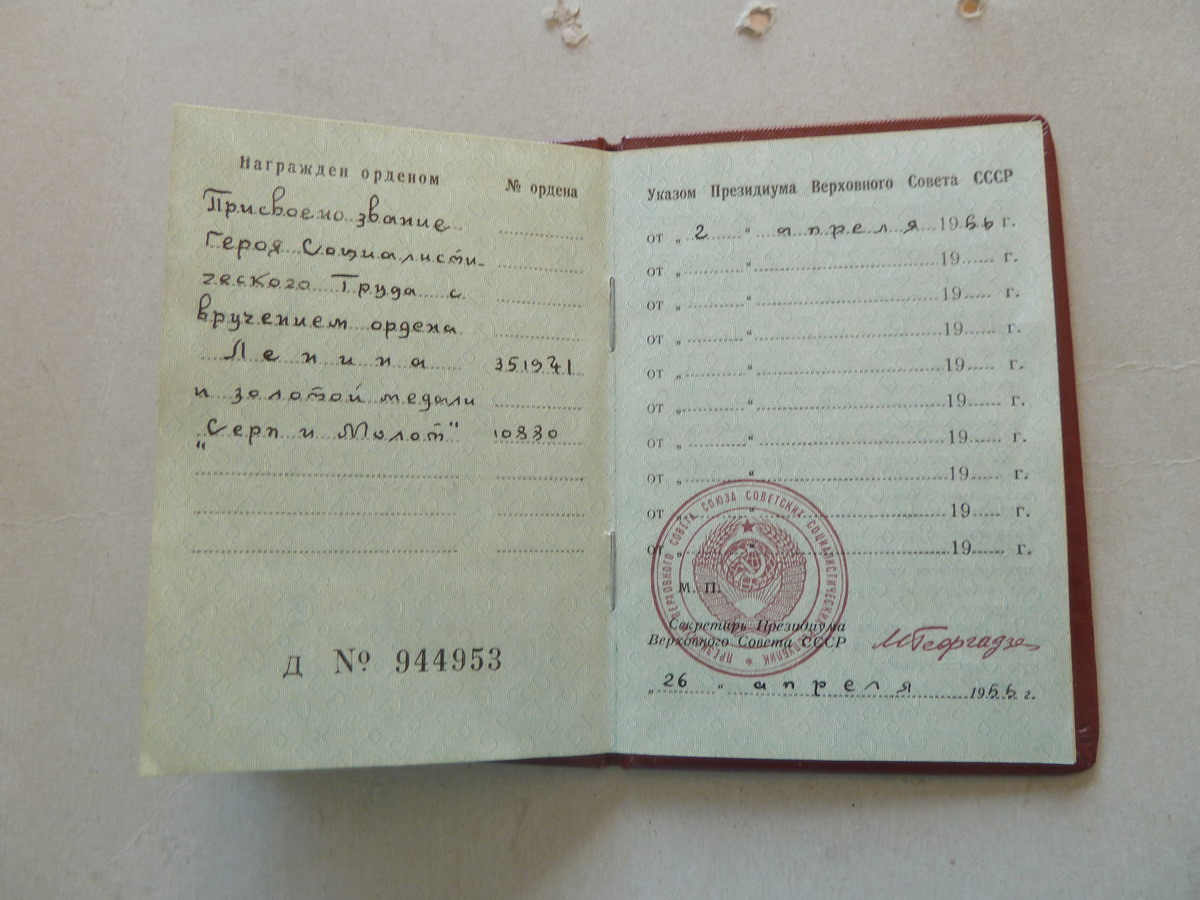 Награжден орденом
№ ордена
Присвоено звание
Героя Социалисти-
ческого Труда с
вручением ордена
Ленина 351941
и золотой медали
„Серп и Молот" 10330
Д № 944953
Указом Президиума Верховного Совета СССР
от „ 2 “ апреля 1966 г.
от „ “ 19 г.
от „ “ 19 г.
от „ “ 19 г.
от „ “ 19 г.
от „ “ 19 г.
от „ “ 19 г.
от „ “ 19 г.
от „ “ 19 г.
от „ “ 19 г.
ПРЕЗИДИУМ ВЕРХОВНОГО СОВЕТА СОЮЗА СОВЕТСКИХ СОЦИАЛИСТИЧЕСКИХ РЕСПУБЛИК
М. П.
Секретарь Президиума
Верховного Совета СССР
МГеоргадзе
„ 26 “ апреля 1966 г.